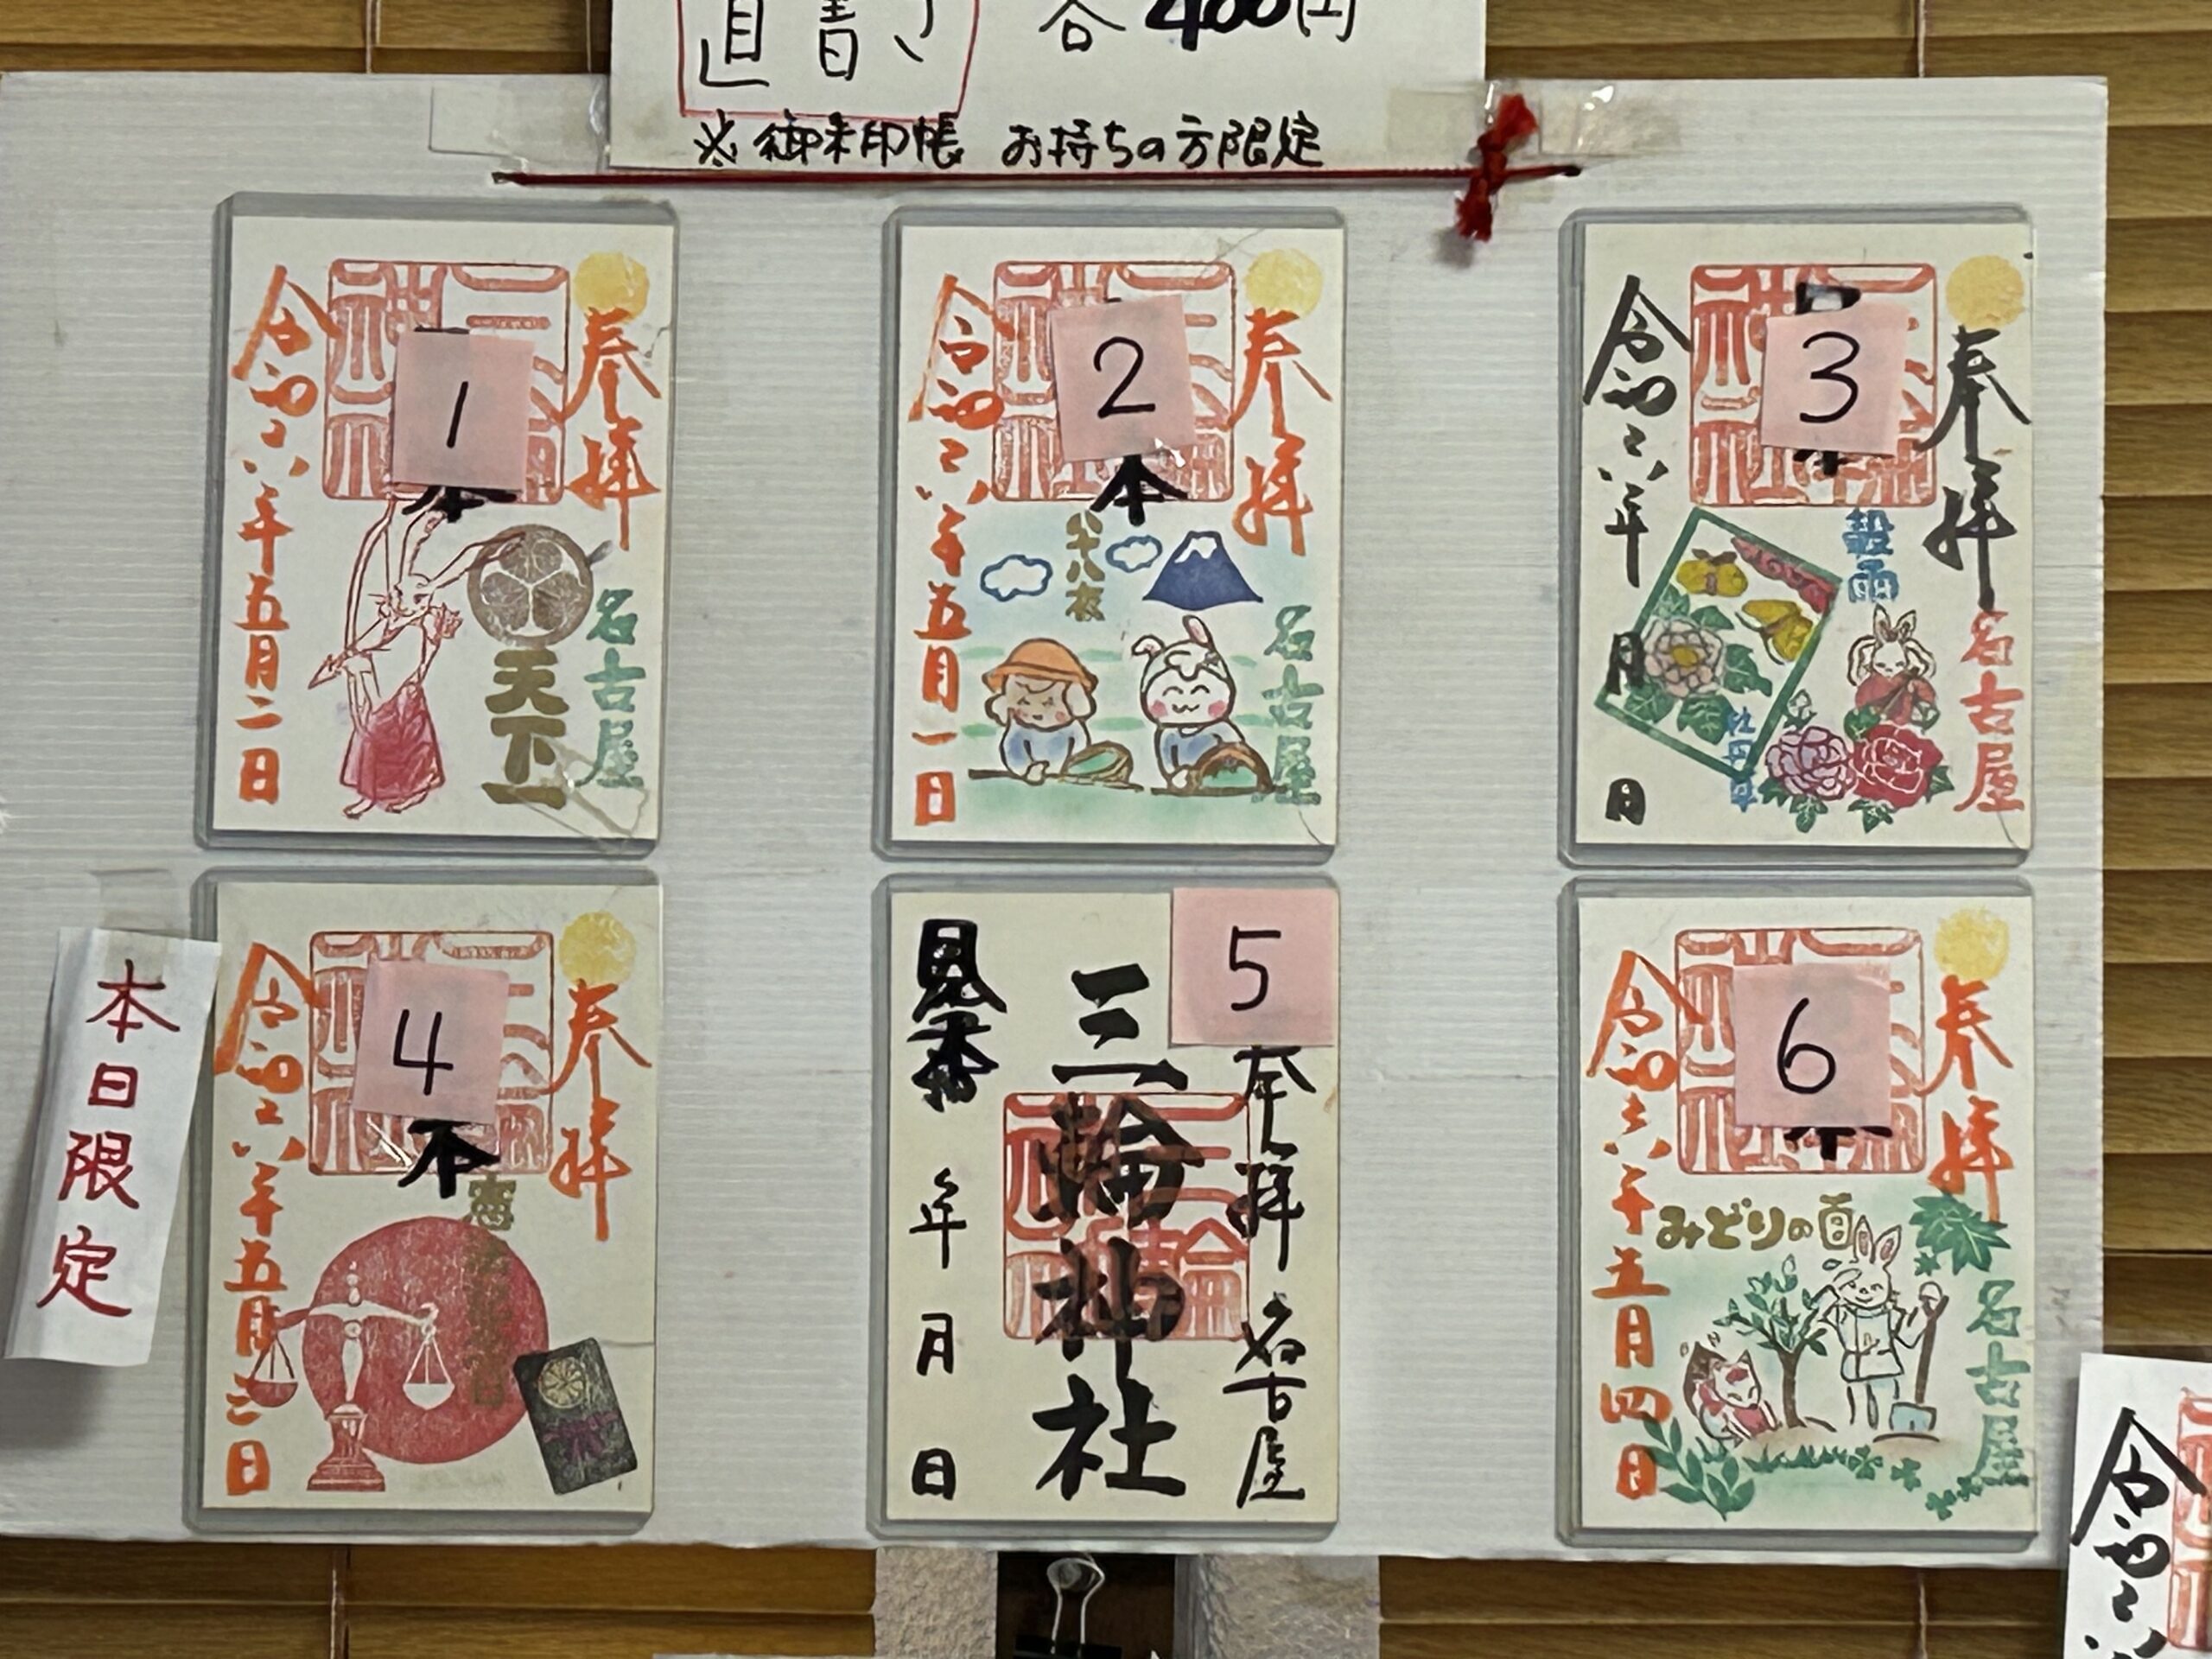 直書き 各400円
※御朱印帳 お持ちの方限定
1
奉拝
名古屋
天下一
令和六年五月二日
2
奉拝
名古屋
八十八夜
本
令和六年五月一日
3
奉拝
名古屋
穀雨
牡丹華
令和六年
月
日
本日限定
4
奉拝
令和六年五月三日
5
奉拝 名古屋
三輪神社
見本
年
月
日
6
奉拝
名古屋
みどりの日
令和六年五月四日
令和六